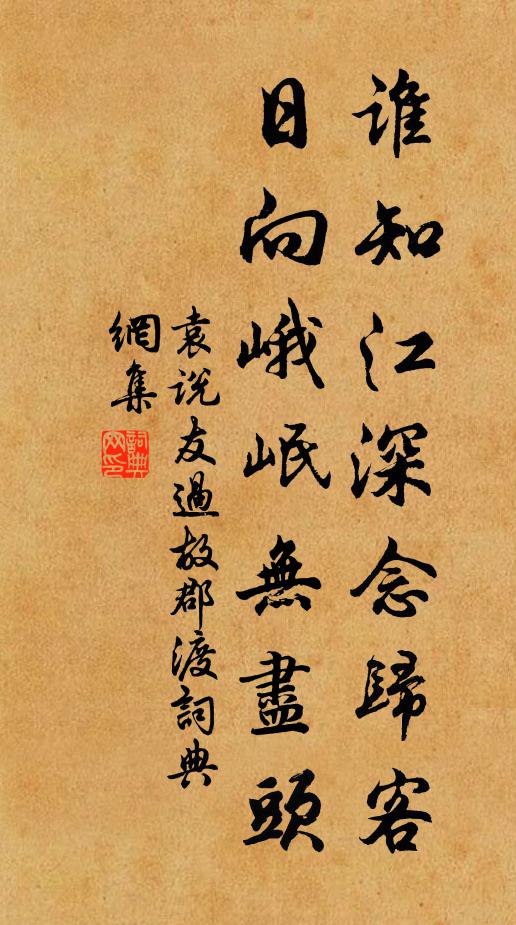 誰知江深念歸客
日向峨岷無盡頭
袁說友過故郡渡詞典
網集
詞典网印